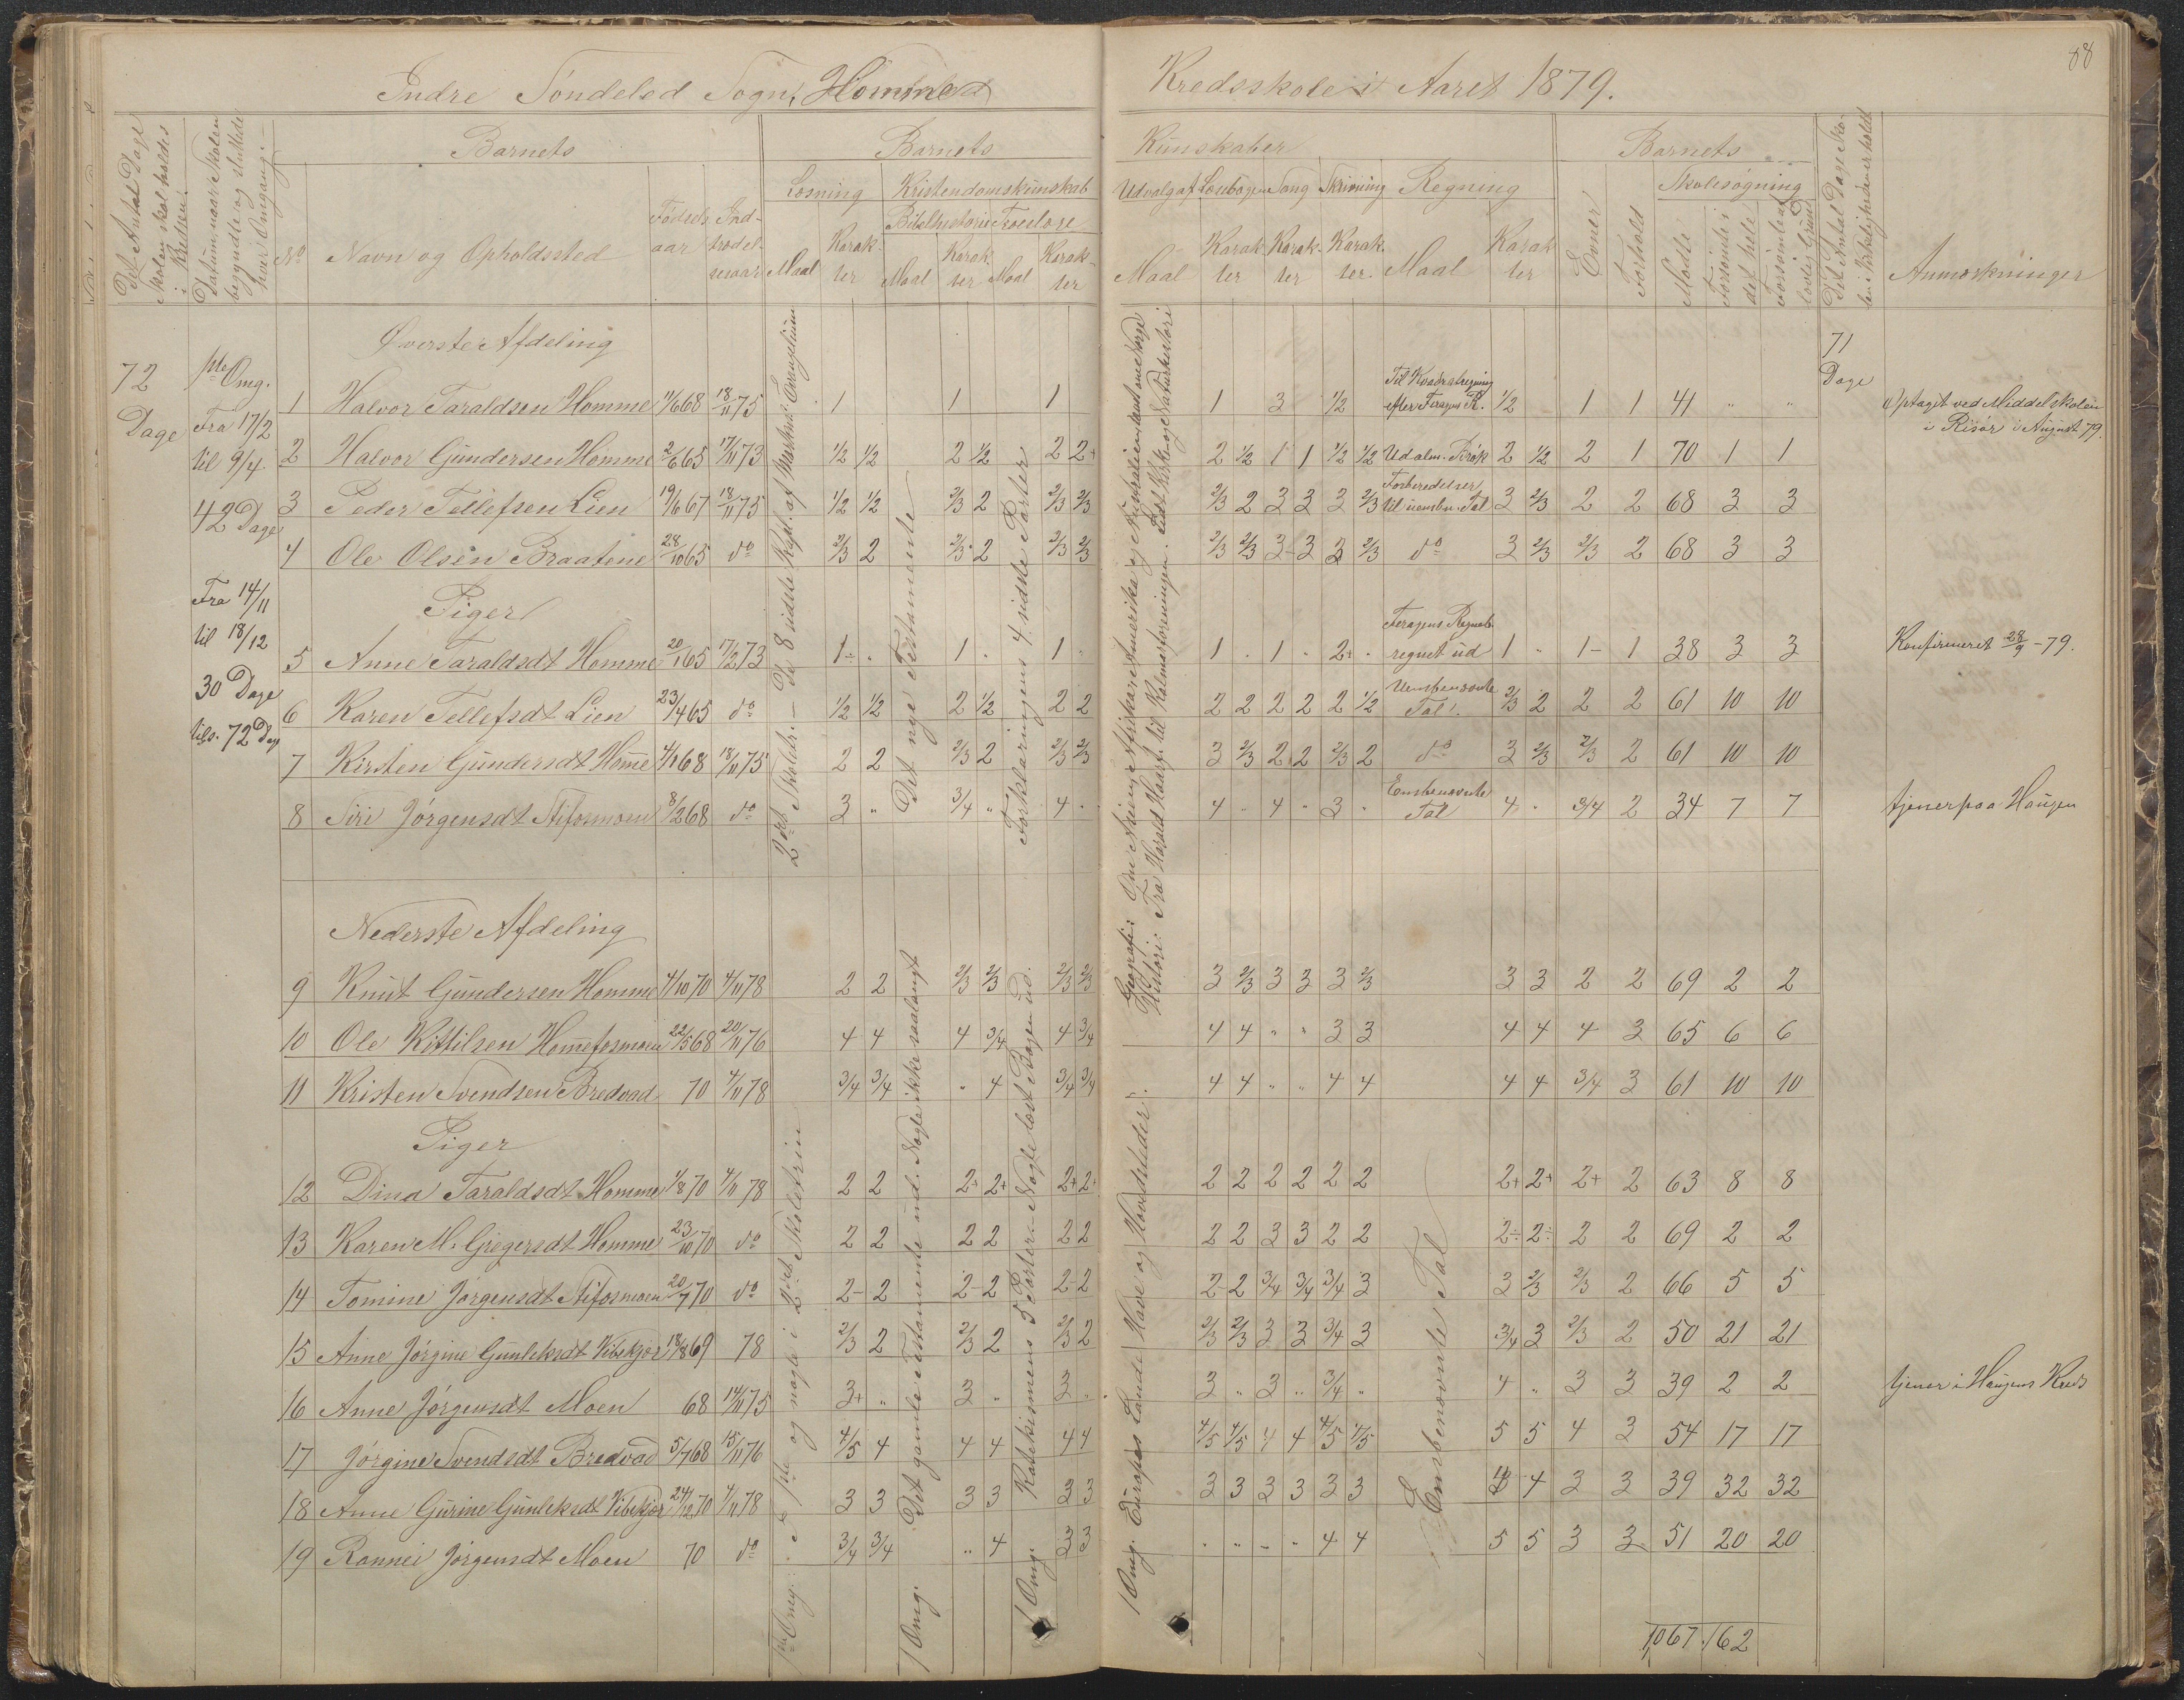 88
Indre Söndeled Sogn, Homme
Kredsskole i Aaret 1879.
Det Antal Dage Skolen skal holdes i Kredsen.
Datum naar Skolen begyndte og sluttede hver Omgang.
Barnets
Barnets
Kundskaber
Barnets
Det Antal Dage Skolen i Virkeligheden er holdt
Læsning Kristendomskundskab
Udvalg af Læsebogen Sang Skrivning Regning
Skolesøgning
Bibelhistorie Troeslære
No Navn og Opholdssted Fødselsaar Indtrædelsesaar Maal Karakter Maal Karakter Maal Karakter
Maal Karakter Karakter Karakter Maal Karakter Evner Forhold Mødte Forsømte i det hele Forsømte af lovlig Grund Anmærkninger
Øverste Afdeling
72 Dage
1ste Omg. Fra 17/2 til 9/4. 42 Dage
Fra 14/11 til 18/12 30 Dage
tils. 72 Dag
71 Dage
1 Halvor Taraldsen Homme 11/6 68 18/11 75 1 1 1 1 3 1/2 Til Kvadratregning efter Feragens R. 1/2 1 1 41 " " Optaget ved Middelskolen i Risør i August 79.
2 Halvor Gundersen Homme 2/6 65 17/11 73 1/2 1/2 2 1/2 2 2+ 2 1/2 1 1 1/2 1/2 Ud alm. Brøk 2 1/2 2 1 70 1 1
3 Peder Tellefsen Lien 19/6 67 18/11 75 1/2 1/2 2/3 2 2/3 2/3 2/3 2 3 3 3 2/3 Forberedelser til uensbn. Tal 3 2/3 2 2 68 3 3
4 Ole Olsen Braatene 28/10 65 do 2/3 2 2/3 2 2/3 2/3 2/3 2/3 3- 3 3 2/3 do 3 2/3 2/3 2 68 3 3
Piger
5 Anne Taraldsdt Homme 20/1 65 17/2 73 1- " 1 " 1 " 1 " 1 " 2+ " Feragens Regneb. regnet ud 1 " 1- 1 38 3 3 Konfirmeret 28/9 - 79.
6 Karen Tellefsdt Lien 23/4 65 do 1/2 1/2 2 1/2 2 2 2 2 2 2 2 1/2 Uensbenævnte Tal 2/3 2 2 2 61 10 10
7 Kirsten Gundersdt Homme 4/1 68 18/11 75 2 2 2/3 2 2/3 2/3 3 2/3 2 2 2/3 2 do 3 2/3 2/3 2 61 10 10
8 Siri Jörgensdt Stifosmoen 8/2 68 do 3 " 3/4 " 4 " 4 " 4 " 3 " Ensbenævnte Tal 4 " 3/4 2 34 7 7 tjener paa Haugen
Nederste Afdeling
9 Knut Gundersen Homme 4/10 70 4/11 78 2 2 2/3 2/3 2/3 2/3 3 2/3 3 3 3 2/3 3 3 2 2 69 2 2
10 Ole Kittilsen Hommefosmoen 22/5 68 20/11 76 4 4 4 3/4 4 3/4 4 4 " " 3 3 4 4 4 3 65 6 6
11 Kristen Svendsen Bredvad 70 4/11 78 3/4 3/4 " 4 3/4 3/4 4 4 " " 4 4 4 4 3/4 3 61 10 10
Piger
12 Dina Taraldsdt Homme 1/8 70 4/11 78 2 2 2+ 2+ 2+ 2+ 2 2 2 2 2 2 2+ 2+ 2+ 2 63 8 8
13 Karen M. Gregersdt Homme 23/10 70 do 2 2 2 2 2 2 2 2 3 3 2 2 2÷ 2÷ 2 2 69 2 2
14 Tomine Jørgensdt Stifosmoen 20/7 70 do 2- 2 2- 2 2- 2 2- 2 3/4 3/4 3/4 3 3 2/3 2/3 2 66 5 5
15 Anne Jörgine Gunleksdt Vibekjær 18/8 69 78 2/3 2 2/3 2 2/3 2 2/3 2/3 3 3 3/4 3 3/4 3 2/3 2 50 21 21
16 Anne Jörgensdt Moen 68 14/11 75 3+ " 3 " 3 " 3 " 3 " 3/4 " 4 " 3 3 39 2 2 tjener i Haugens Kreds
17 Jörgine Svendsdt Bredvad 5/7 68 15/11 76 4/5 4 4 4 4 4 4/5 4/5 4 4 4/5 4/5 5 5 4 3 54 17 17
18 Anne Gurine Gunleksdt Vibekjær 24/12 70 4/11 78 3 3 3 3 3 3 3 3 3 3 3 3 4 4 3 3 39 32 32
19 Ronnei Jörgensdt Moen 70 do 3/4 3/4 " 4 3 3 " " " " 4 4 5 5 3 3 51 20 20
1067 162
1ste Omg: De 1ste og nogle i 2det Skoletrin
2det Skoletrin - De 8 sidste Kapt. af Markus Evangelium
1 Omg. Det gamle Testamente ud. Nogle ikke saalangt
Det nye Testamente
1 Omg. Katekismens 5 Parter. Nogle læst Bogen ud.
Forklaringens 4 sidste Parter
1 Omg. Europas Lande Have og Hovedsteder.
Geografi: Om Asien, Afrika, Amerika og Australien samt om Norge
Historie: Fra Harald Haarf. til Kalmarforeningen. Lidt Kirke og Naturhistori
Ensbenævnte Tal